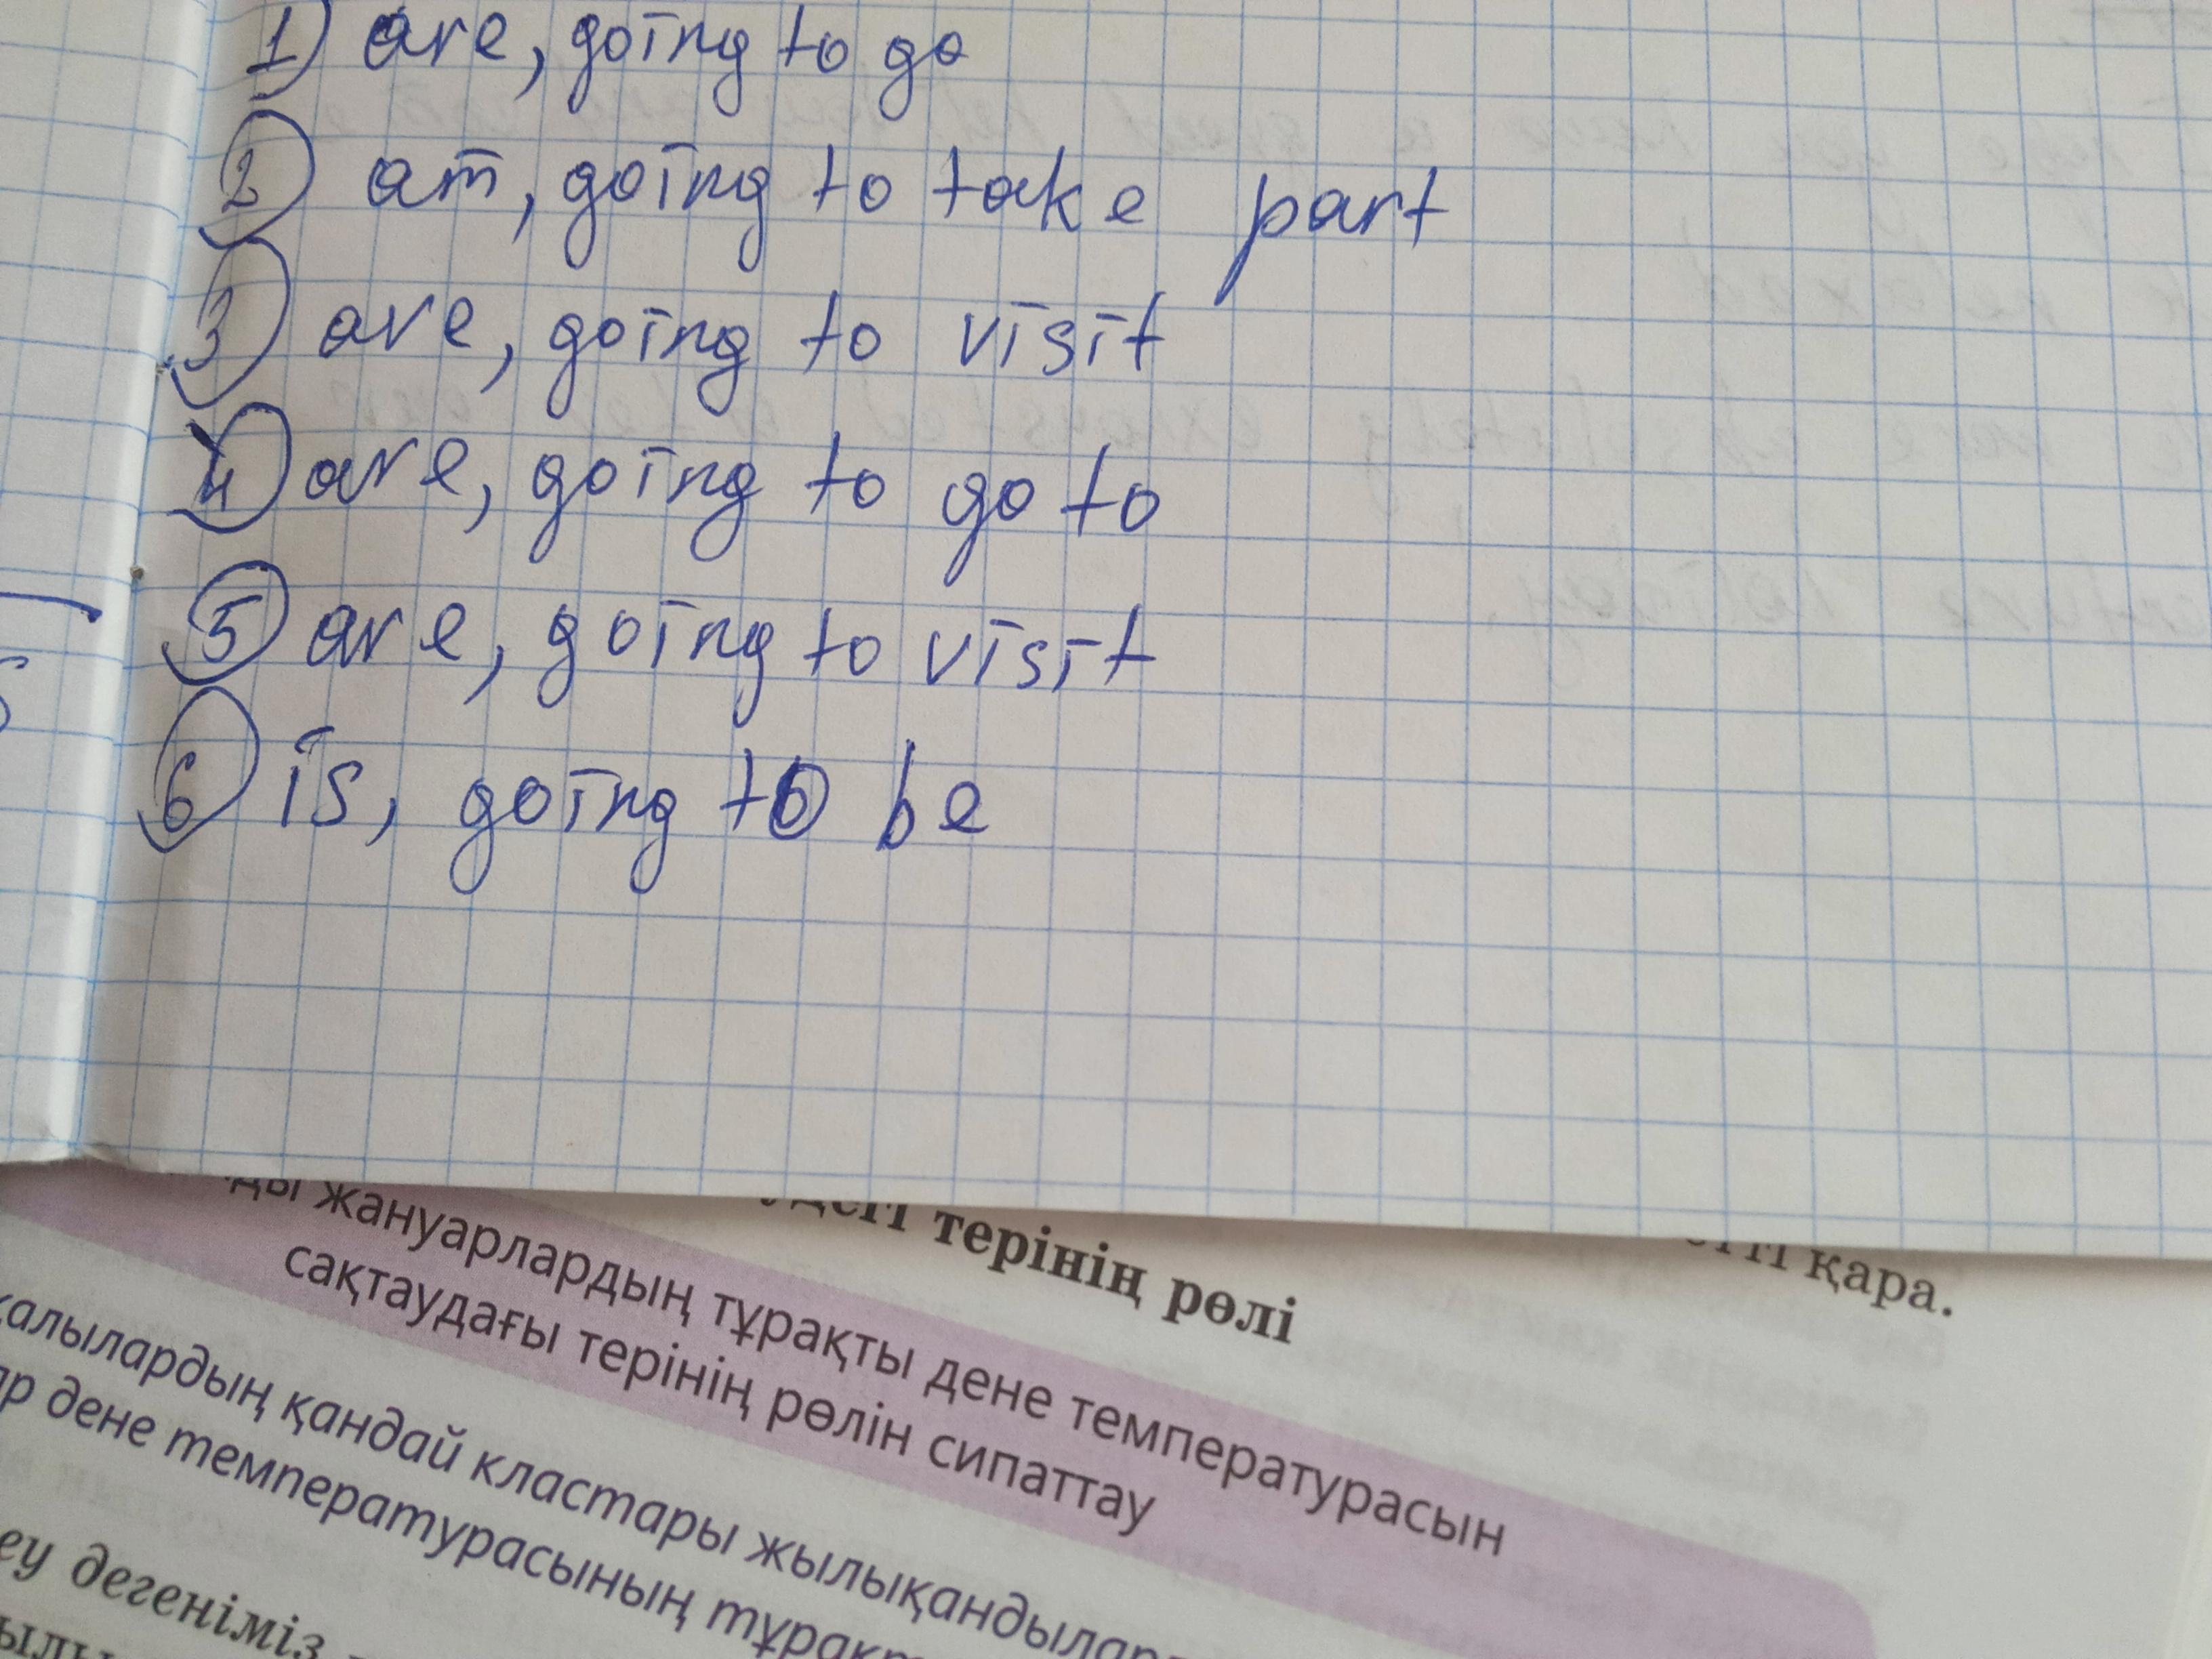 1) are, going to go
2) am, going to take part
3) are, going to visit
4) are, going to go to
5) are, going to visit
6) is, going to be
қара.
терінің рөлі
жануарлардың тұрақты дене температурасын
сақтаудағы терінің рөлін сипаттау
қандай кластары
дене температурасының
дегеніміз